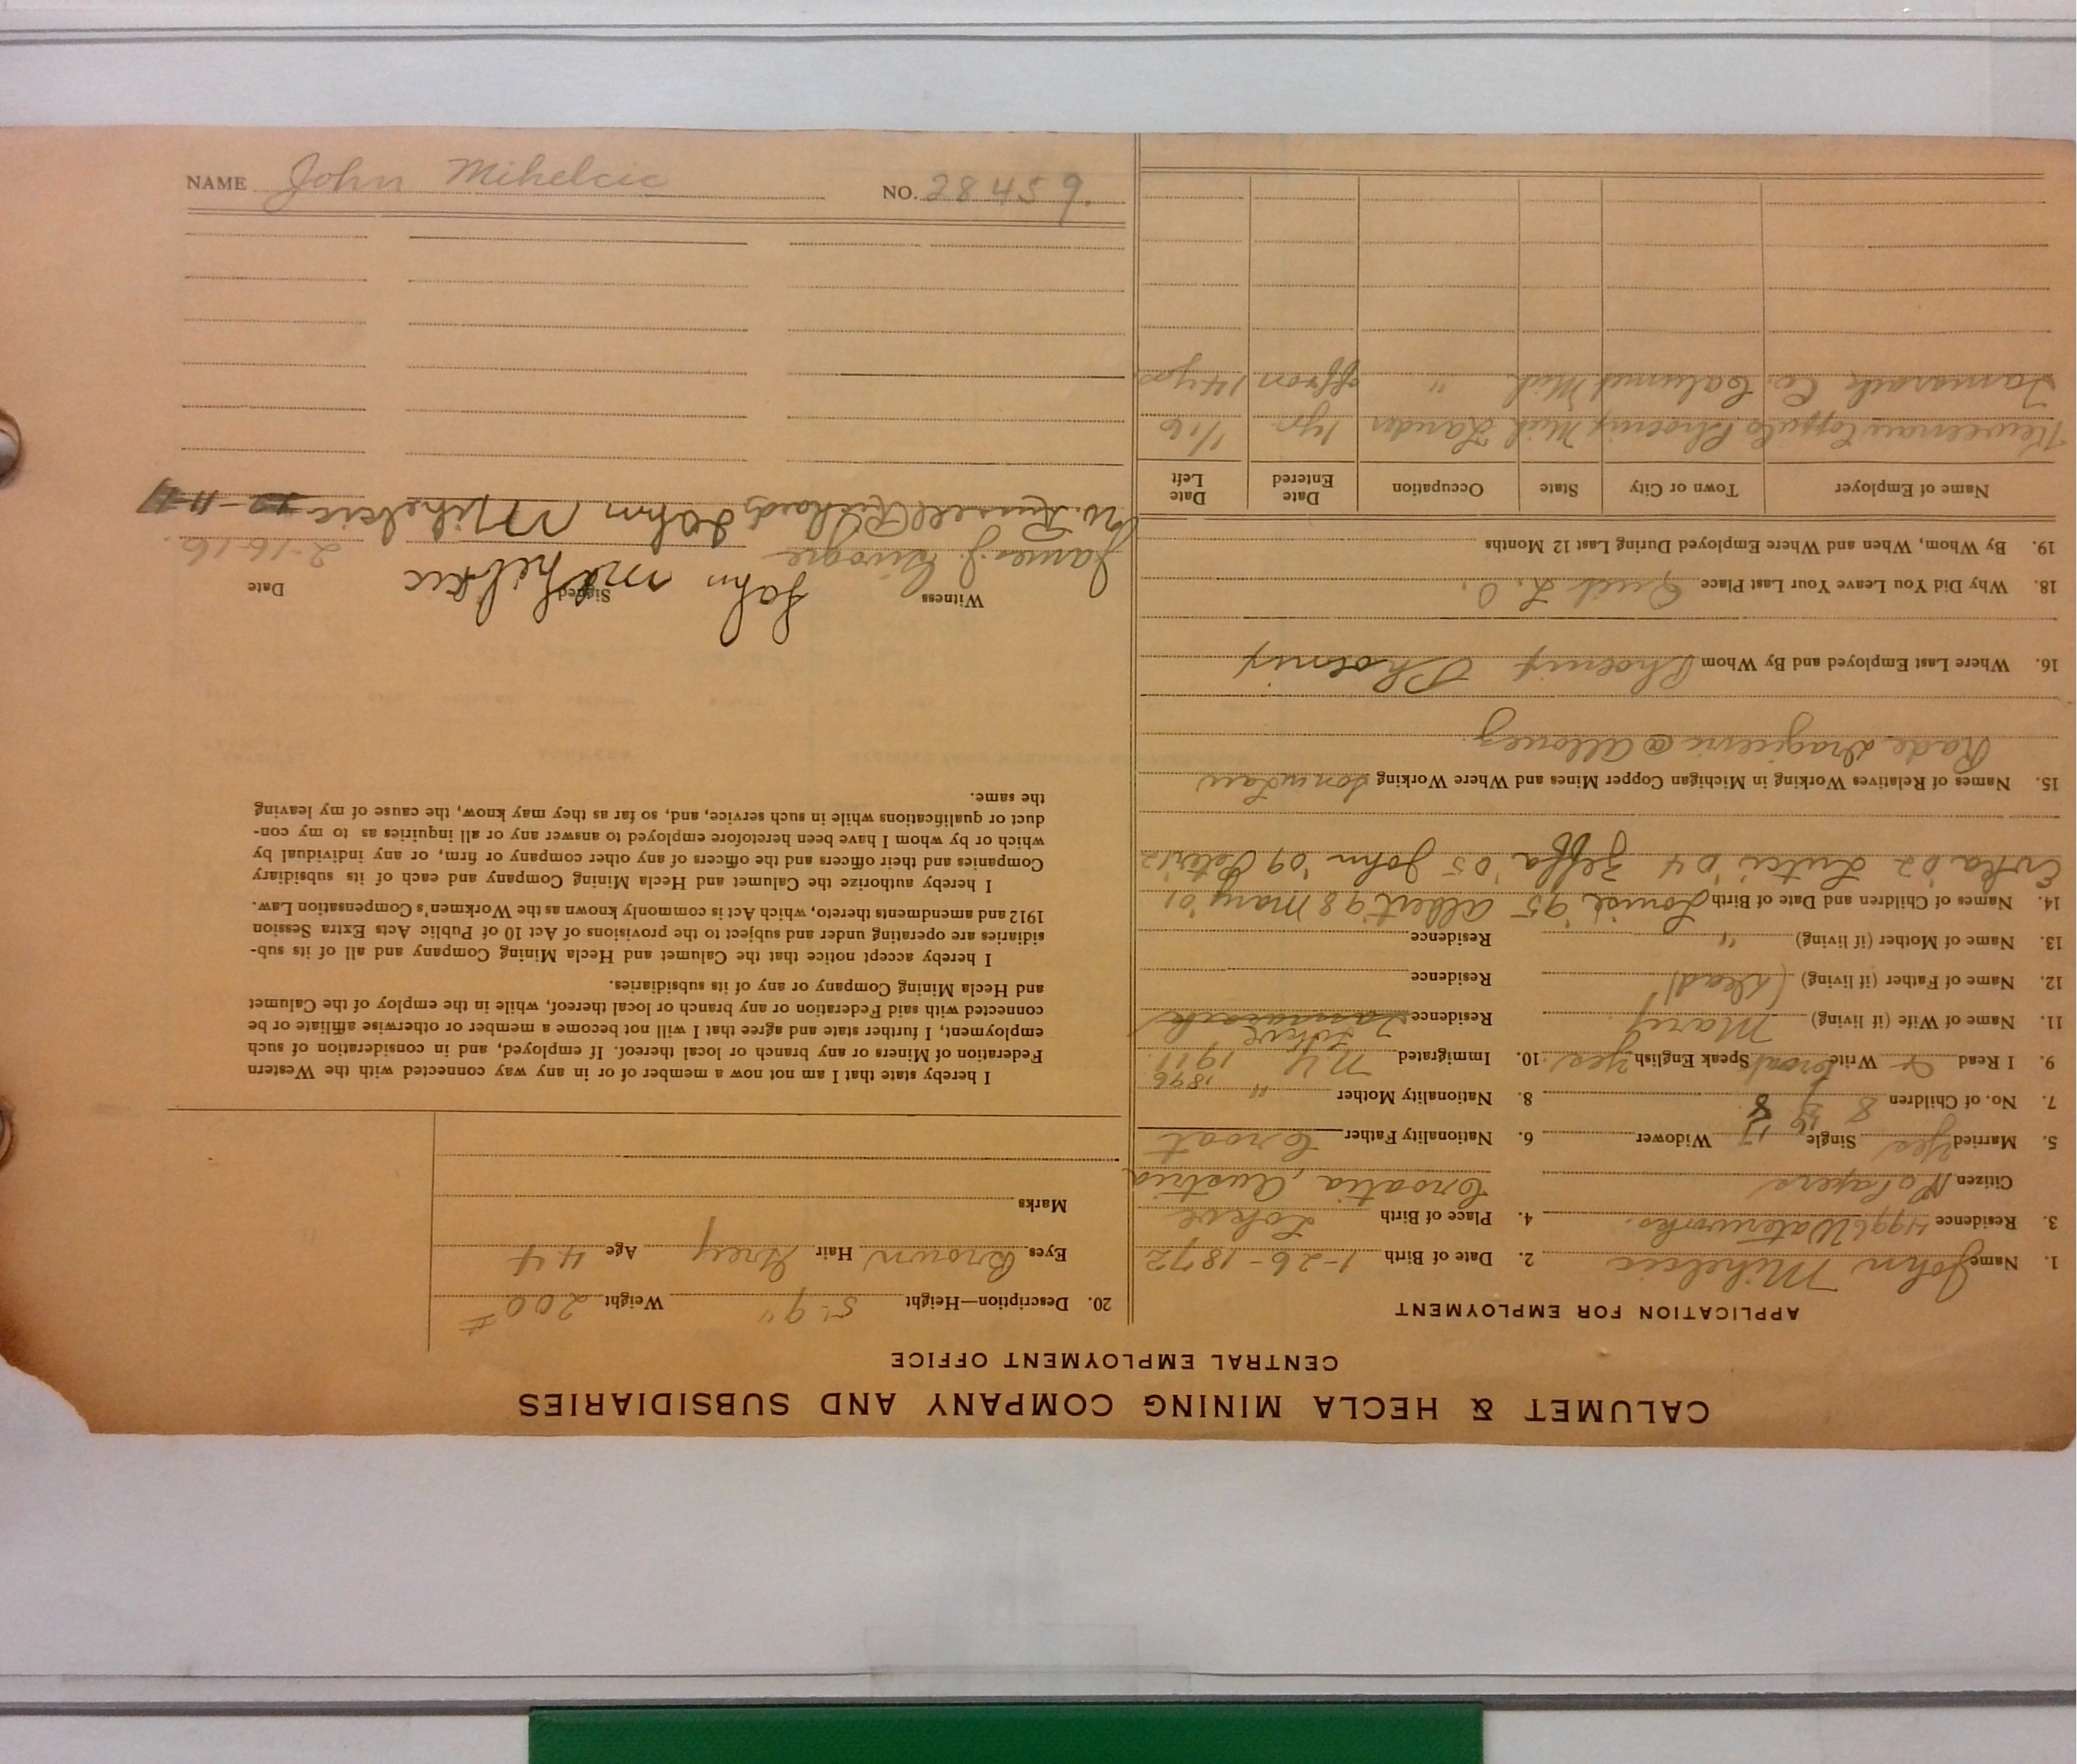 CALUMET & HECLA MINING COMPANY AND SUBSIDIARIES
CENTRAL EMPLOYMENT OFFICE
APPLICATION FOR EMPLOYMENT
1. Name John Mihelcic 2. Date of Birth 1-26-1872
3. Residence 4996 Waterworks. 4. Place of Birth Lokve
Citizen No Papers Croatia, Austria
5. Married Yes Single Widower 6. Nationality Father Croat
7. No. of Children 8 8 8. Nationality Mother "
9. I Read & Write Croat Speak English yes 10. Immigrated N Y 1896 1911
11. Name of Wife (if living) Mary Residence Tamarack Lokve
12. Name of Father (if living) (Dead) Residence
13. Name of Mother (if living) " Residence
14. Names of Children and Date of Birth Louise '95 Albert '98 Mary '01
'02 '04 '05 John '09 Peter '12
15. Names of Relatives Working in Michigan Copper Mines and Where Working Son in Law
Rade Dragicevic @ Allouez.
16. Where Last Employed and By Whom Phoenix Phoenix
18. Why Did You Leave Your Last Place Quit
19. By Whom, When and Where Employed During Last 12 Months
Name of Employer Town or City State Occupation Date Entered Date Left
Keweenaw Copper Co Phoenix Mich Lander 1 yr 1/16
Tamarack Co. Calumet Mich. " off & on 14 yrs
20. Description—Height 5' 9" Weight 200 #
Eyes Brown Hair Grey Age 44
Marks
I hereby state that I am not now a member of or in any way connected with the Western
Federation of Miners or any branch or local thereof. If employed, and in consideration of such
employment, I further state and agree that I will not become a member or otherwise affiliate or be
connected with said Federation or any branch or local thereof, while in the employ of the Calumet
and Hecla Mining Company or any of its subsidiaries.
I hereby accept notice that the Calumet and Hecla Mining Company and all of its sub-
sidiaries are operating under and subject to the provisions of Act 10 of Public Acts Extra Session
1912 and amendments thereto, which Act is commonly known as the Workmen's Compensation Law.
I hereby authorize the Calumet and Hecla Mining Company and each of its subsidiary
Companies and their officers and the officers of any other company or firm, or any individual by
which or by whom I have been heretofore employed to answer any or all inquiries as to my con-
duct or qualifications while in such service, and, so far as they may know, the cause of my leaving
the same.
Witness Signed Date
James J. John Mihelcic 2-16-16.
W. Russell Richards John Mihelcic
NAME John Mihelcic NO. 28459.